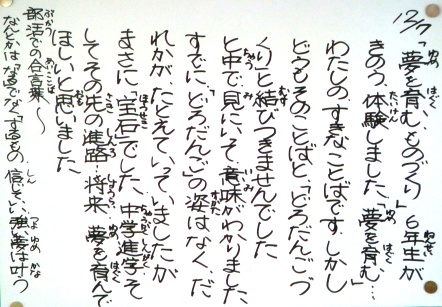 12/7「夢を育む、ものづくり」6年生が
きのう、体験しました。「夢を育む…
わたしのすきなことばです。しかし
どうもそのことばと「どろだんごづ
くり」と結びつきませんでした
と中で見にいって、意味がわかりました
すでに、「どろだんご」の姿はなく、だ
れかが、たとえていっていましたが
まさに「宝石」でした。中学進学、そ
してその先の進路・将来、夢を育んで
ほしいと思いました
部活での合言葉〜
「なんかは「なるでな、「するもの、信じ、強い夢は叶う